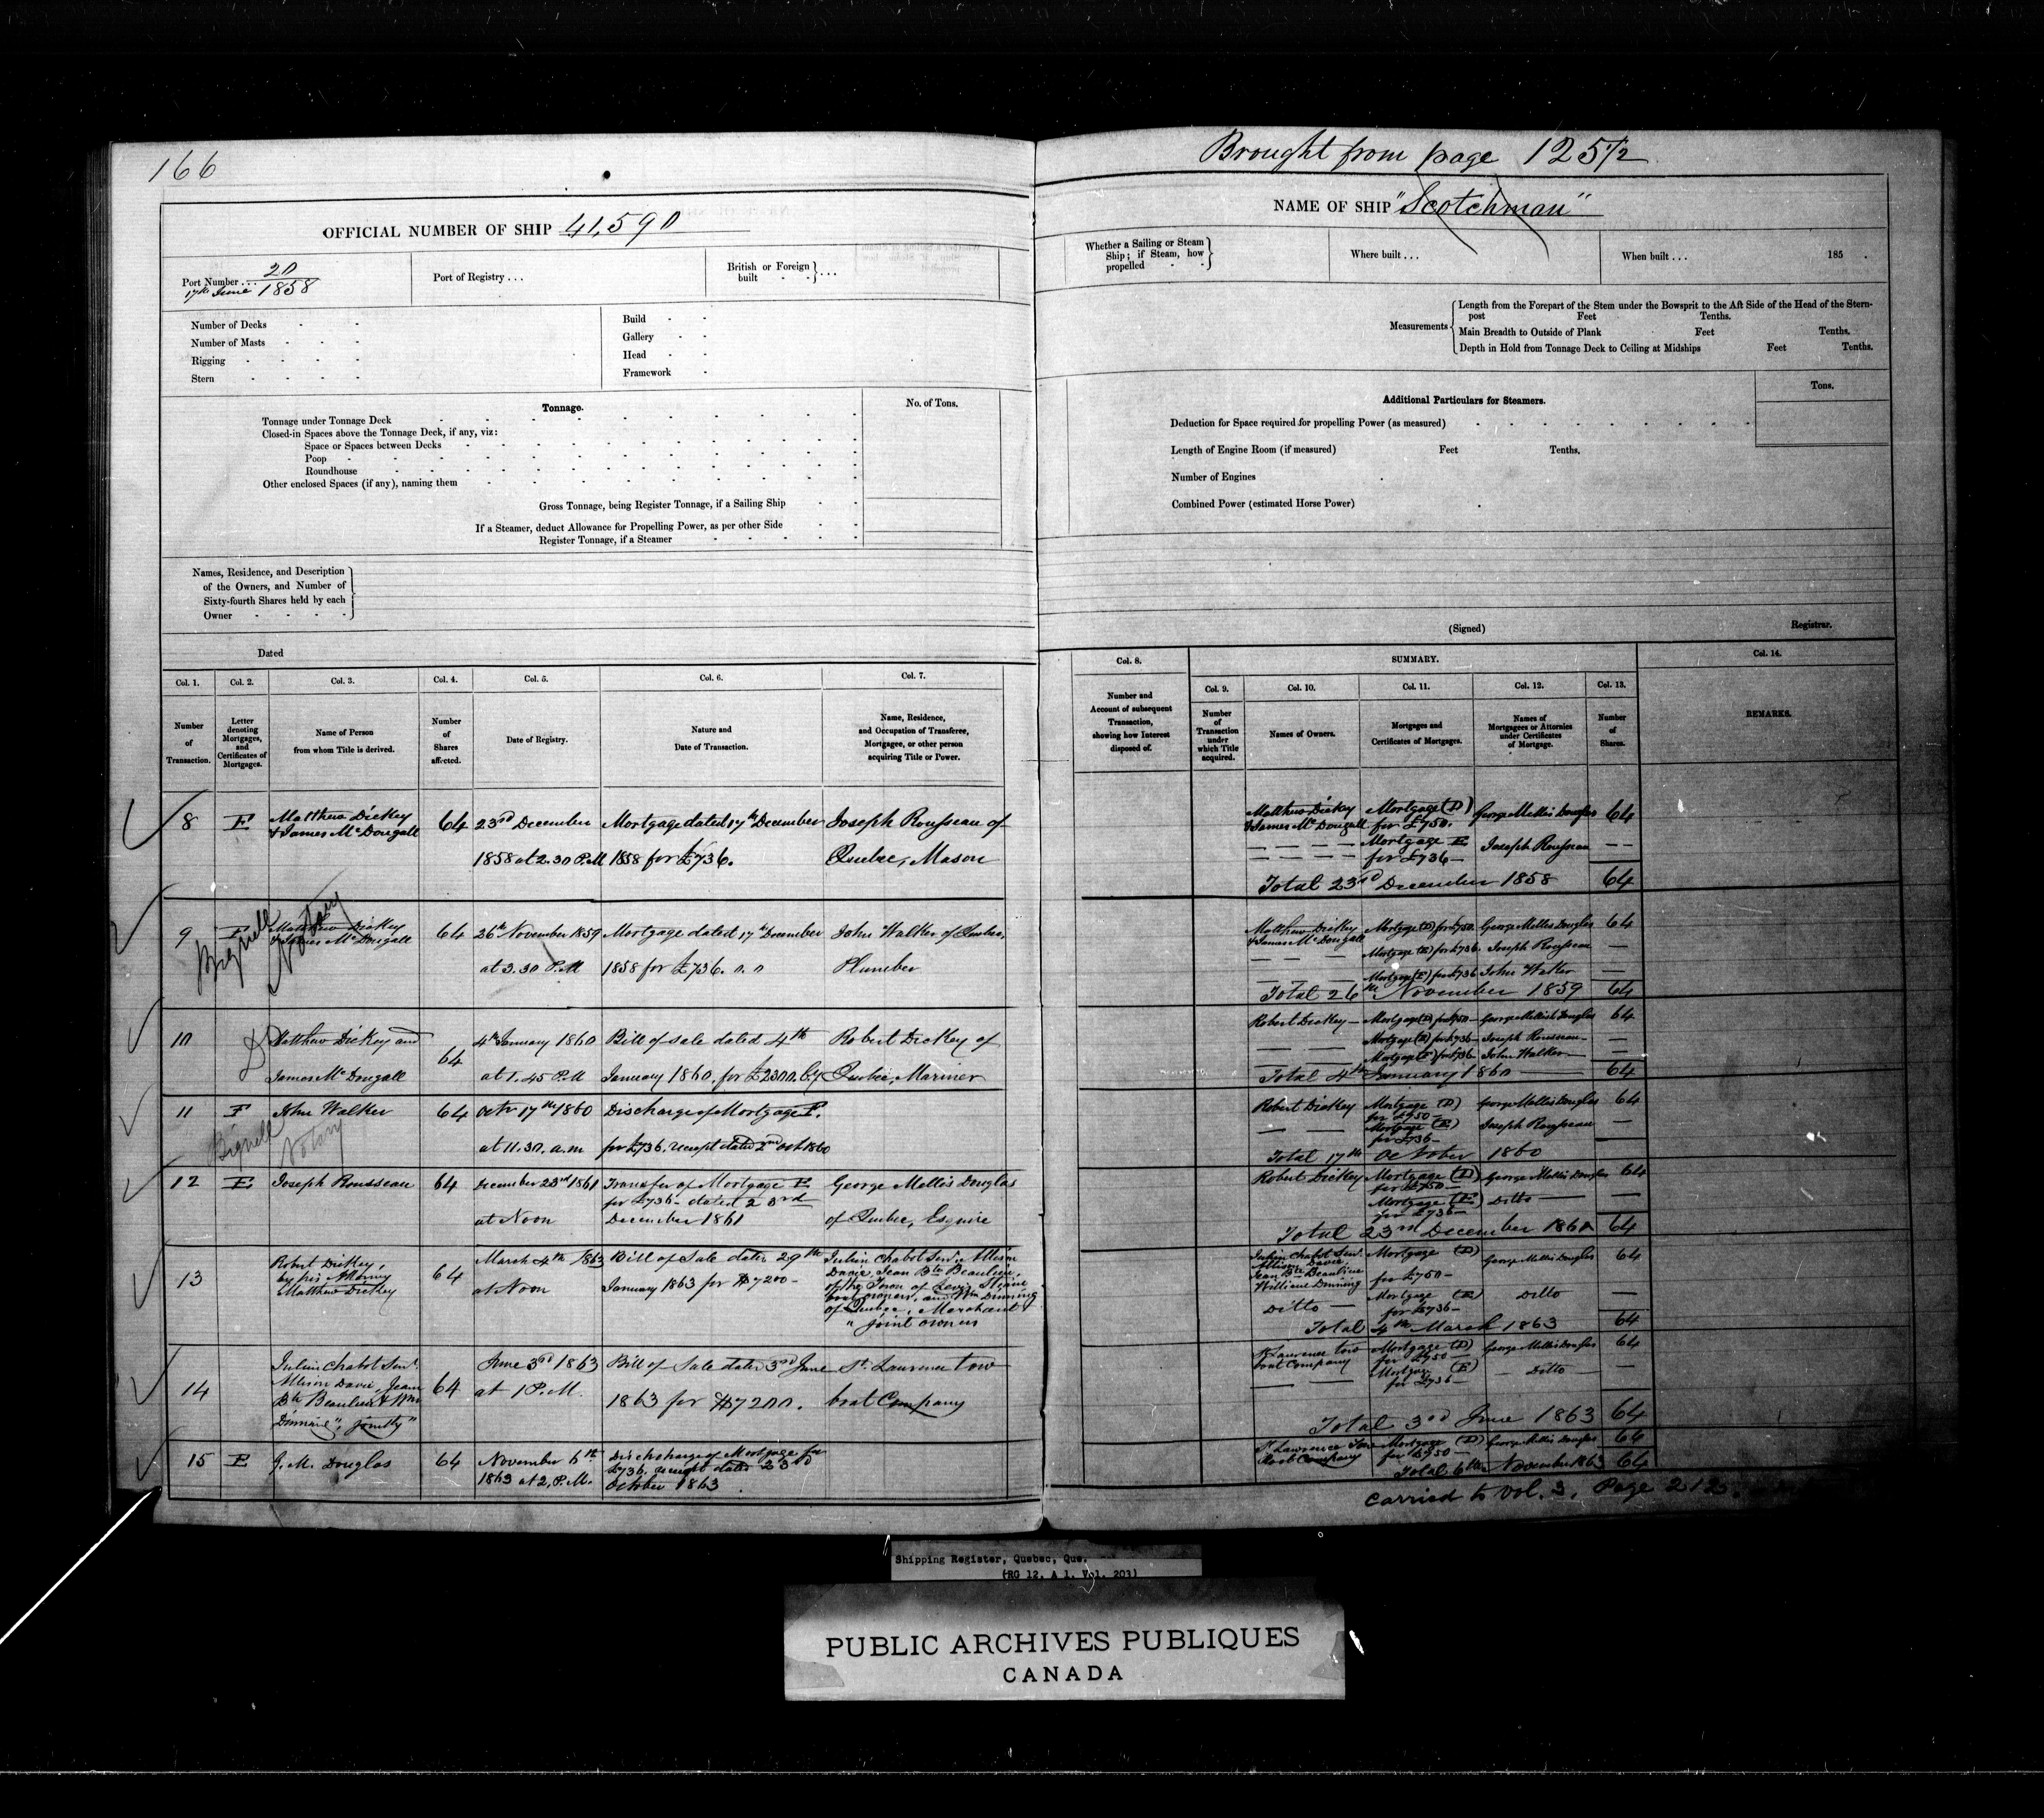 166
Brought from page 125 1/2
OFFICIAL NUMBER OF SHIP 41,590
NAME OF SHIP "Scotchman"
Port Number . . . 20
17th June 1858
Port of Registry . . .
British or Foreign
built - - } . . .
Whether a Sailing or Steam
Ship; if Steam, how
propelled - -
Where built . . .
When built . . . 185 .
Number of Decks - -
Number of Masts - - -
Rigging - - - -
Stern - - - -
Build - -
Gallery - -
Head - -
Framework -
Measurements
Length from the Forepart of the Stem under the Bowsprit to the Aft Side of the Head of the Stern-
post Feet Tenths.
Main Breadth to Outside of Plank Feet Tenths.
Depth in Hold from Tonnage Deck to Ceiling at Midships Feet Tenths.
Tonnage.
No. of Tons.
Tonnage under Tonnage Deck
Closed-in Spaces above the Tonnage Deck, if any, viz:
Space or Spaces between Decks
Poop
Roundhouse
Other enclosed Spaces (if any), naming them
Gross Tonnage, being Register Tonnage, if a Sailing Ship
If a Steamer, deduct Allowance for Propelling Power, as per other Side
Register Tonnage, if a Steamer
Additional Particulars for Steamers.
Tons.
Deduction for Space required for propelling Power (as measured)
Length of Engine Room (if measured) Feet Tenths.
Number of Engines
Combined Power (estimated Horse Power)
Names, Residence, and Description
of the Owners, and Number of
Sixty-fourth Shares held by each
Owner - - - -
(Signed) Registrar.
Dated
Col. 1. Col. 2. Col. 3. Col. 4. Col. 5. Col. 6. Col. 7.
Number of Transaction.
Letter denoting Mortgages, and Certificates of Mortgages.
Name of Person from whom Title is derived.
Number of Shares affected.
Date of Registry.
Nature and Date of Transaction.
Name, Residence, and Occupation of Transferee, Mortgagee, or other person acquiring Title or Power.
Col. 8. SUMMARY. Col. 14.
Col. 9. Col. 10. Col. 11. Col. 12. Col. 13.
Number and Account of subsequent Transaction, showing how Interest disposed of.
Number of Transaction under which Title acquired.
Names of Owners.
Mortgages and Certificates of Mortgages.
Names of Mortgagees or Attornies under Certificates of Mortgage.
Number of Shares.
REMARKS.
8 E Matthew Dickey 64 23rd December Mortgage dated 17th December Joseph Rousseau of
& James McDougall 1858 at 2.30 P.M 1858 for £736. Quebec, Mason
9 F Matthew Dickey 64 26th November 1859 Mortgage dated 17th December John Walker of Quebec,
& James McDougall at 3.30 P.M 1858 for £736.0.0 Plumber
Bignell Notary
10 Matthew Dickey and 64 4th January 1860 Bill of sale dated 4th Robert Dickey of
James McDougall at 1.45 P.M January 1860. for £2300. Cy Quebec, Mariner
11 F John Walker 64 Octr 17th 1860 Discharge of Mortgage F.
at 11.30. a.m for £736. receipt dated 2nd Oct 1860
Bignell Notary
12 E Joseph Rousseau 64 December 23rd 1861 Transfer of Mortgage E George Mellis Douglas
for £736- dated 23rd
at Noon December 1861 of Quebec, Esquire
13 Robert Dickey, 64 March 4th 1863 Bill of Sale dated 29th Julien Chabot Senr. Allison
by his Attorney at Noon January 1863 for $7200- Davie, Jean Bte Beaulieu,
Matthew Dickey of the Town of Levis, Steam
boat owners, and Wm Dinning
of Quebec, Merchant
" joint owners
14 Julien Chabot Senr. 64 June 3rd 1863 Bill of Sale dated 3rd June St. Lawrence tow
Allison Davie, Jean at 1 P.M. 1863 for $7200. boat Company
Bte Beaulieu & Wm
Dinning ", jointly "
15 E G. M. Douglas 64 November 6th Dischcharge of Mortgage for
1863 at 2, P.M. £736. receipt dated 23rd
October 1863.
Matthew Dickey Mortgage (D) George Mellis Douglas 64
& James McDougall for £750.
Mortgage E Joseph Rousseau
for £736-
Total 23rd December 1858 64
Matthew Dickey Mortgage (D) for £750 George Mellis Douglas 64
& James McDougall Mortgage (E) for £736 Joseph Rousseau
Mortgage (F) for £736 John Walker
Total 26th November 1859 64
Robert Dickey Mortgage (D) for £750 George Mellis Douglas 64
Mortgage (E) for £736 Joseph Rousseau
Mortgage (F) for £736 John Walker
Total 4th January 1860 64
Robert Dickey Mortgage (D) George Mellis Douglas 64
for £750-
Mortgage (E) Joseph Rousseau
for £736-
Total 17th October 1860
Robert Dickey Mortgage (D) George Mellis Douglas 64
for £750-
Mortgage (E) Ditto
for £736-
Total 23rd December 1861 64
Julien Chabot Senr. Mortgage (D) George Mellis Douglas 64
Allison Davie,
Jean Bte Beaulieu for £750-
William Dinning
Ditto Mortgage (E) Ditto
for £736-
Total 4th March 1863 64
St Lawrence tow Mortgage (D) George Mellis Douglas 64
boat Company for £750-
Mortgage (E) Ditto
for £736-
Total 3rd June 1863 64
St Lawrence Tow Mortgage (D) George Mellis Douglas 64
Boat Company for £750-
Total 6th November 1863 64
Carried to Vol. 3, Page 212.
Shipping Register, Quebec, Que.
(RG 12, A 1, Vol. 203)
PUBLIC ARCHIVES PUBLIQUES
CANADA